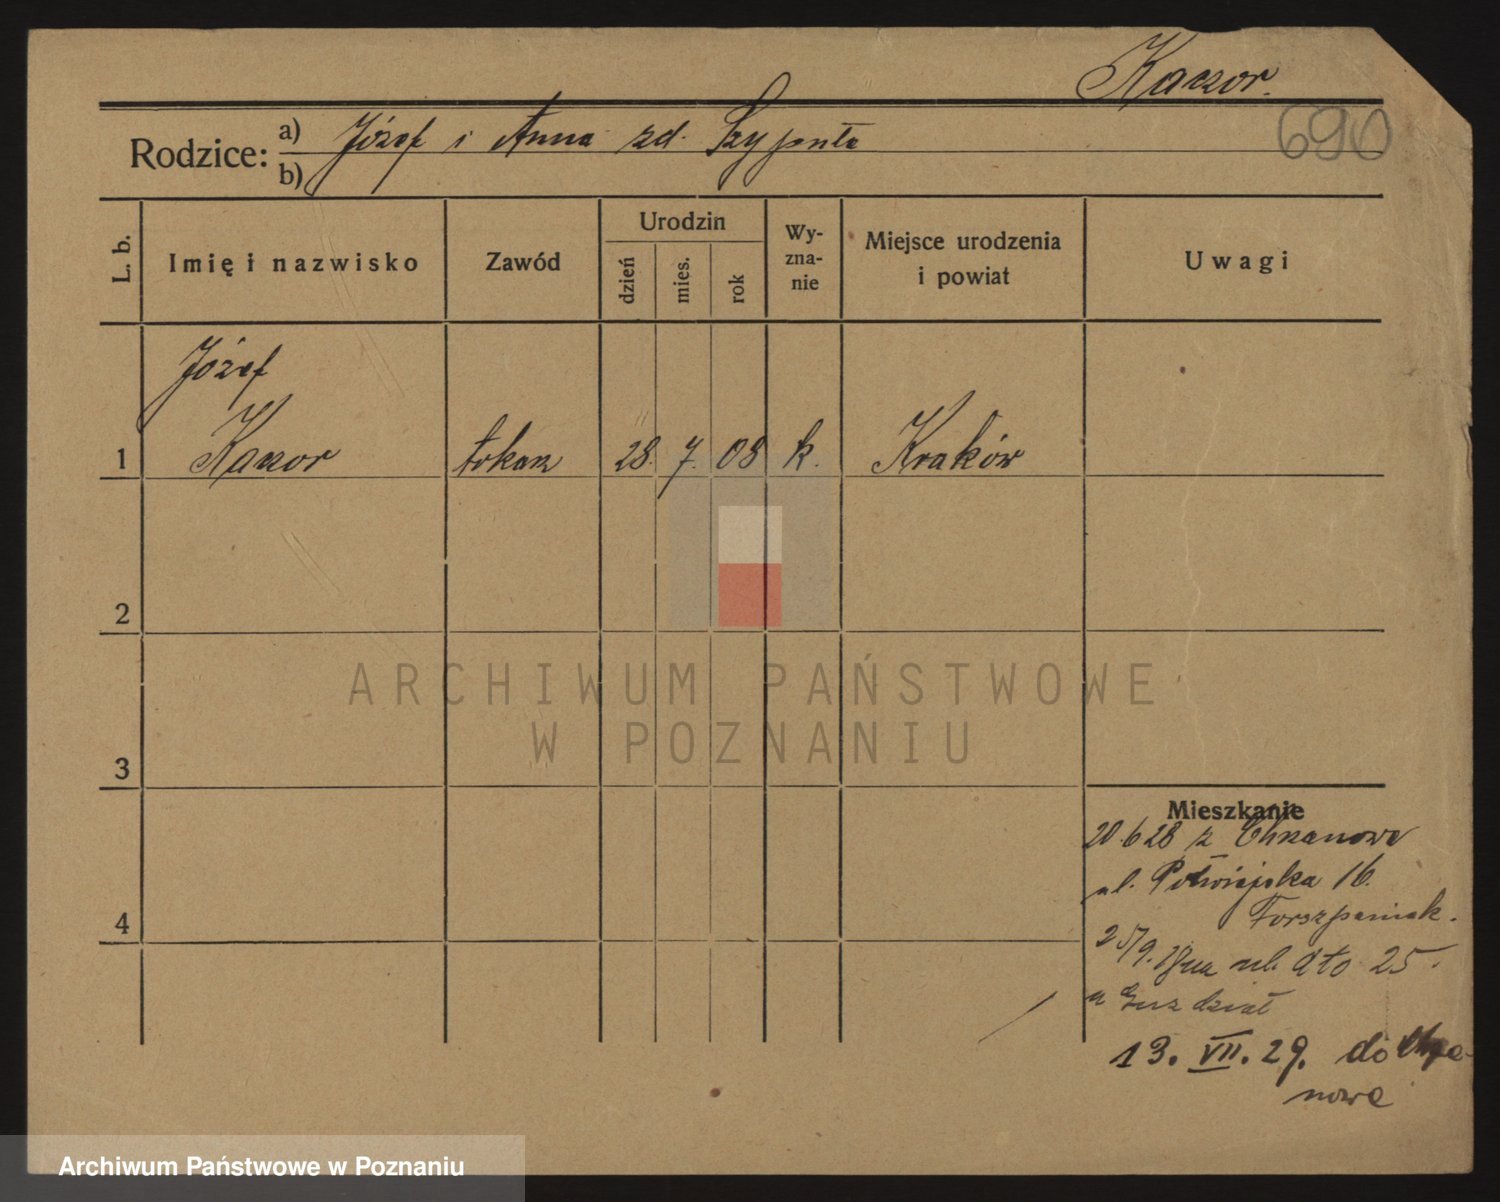 Kaczor.
690
Rodzice: a) Józef i Anna zd. Szypuła
b)
L. b.
Imię i nazwisko
Zawód
Urodzin
dzień
mies.
rok
Wy-
zna-
nie
Miejsce urodzenia
i powiat
Uwagi
Józef
1 Kaczor tokarz 28. 7. 08 k. Kraków
2
3
4
Mieszkanie
20.6 28 z Chrzanowa
ul. Półwiejska 16.
25/9. ul. dto 25.
13. VII. 29. do Chrza-
nowa
ARCHIWUM PAŃSTWOWE
W POZNANIU
Archiwum Państwowe w Poznaniu